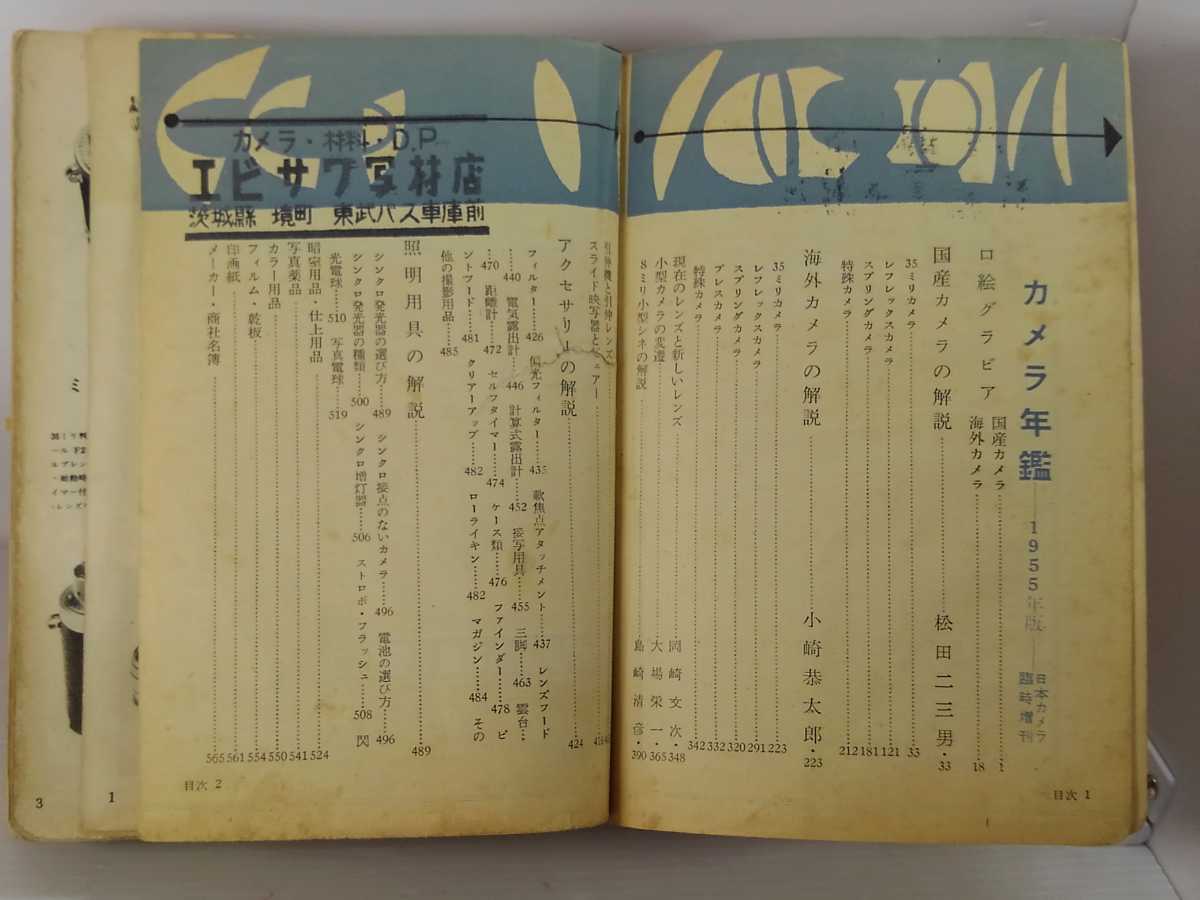 カメラ年鑑
1955年版
日本カメラ
臨時増刊
口絵グラビア
国産カメラ……1
海外カメラ……18
国産カメラの解説……松田二三男・33
35ミリカメラ……33
レフレックスカメラ……121
スプリングカメラ……181
特殊カメラ……212
海外カメラの解説……小崎恭太郎・223
35ミリカメラ……223
レフレックスカメラ……291
スプリングカメラ……320
プレスカメラ……332
特殊カメラ……342
現在のレンズと新しいレンズ……岡崎文次・348
小型カメラの変遷……大場栄一・365
8ミリ小型シネの解説……島崎清彦・390
目次 1
カメラ・材料・D.P.
エビサワ写材店
茨城縣 境町 東武バス車庫前
引伸機と引伸レンズ
スライド映写器と
アクセサリーの解説……424
フィルター……426 偏光フィルター……435 軟焦点アタッチメント……437 レンズフード
……440 電気露出計……446 計算式露出計……452 接写用具……455 三脚……463 雲台…
…470 距離計……472 セルフタイマー……474 ケース類……476 ファインダー……478 ビ
ントフード……481 クリアーアップ……482 ローライキン……482 マガジン……484 その
他の撮影用品……485
照明用具の解説……489
シンクロ発光器の選び方……489 シンクロ接点のないカメラ……496 電池の選び方……496
シンクロ発光器の種類……500 シンクロ増灯器……506 ストロボ・フラッシュ……508 閃
光電球……510 写真電球……519
暗室用品・仕上用品……524
写真薬品……541
カラー用品……550
フィルム・乾板……554
印画紙……561
メーカー・商社名簿……565
目次 2
1
3